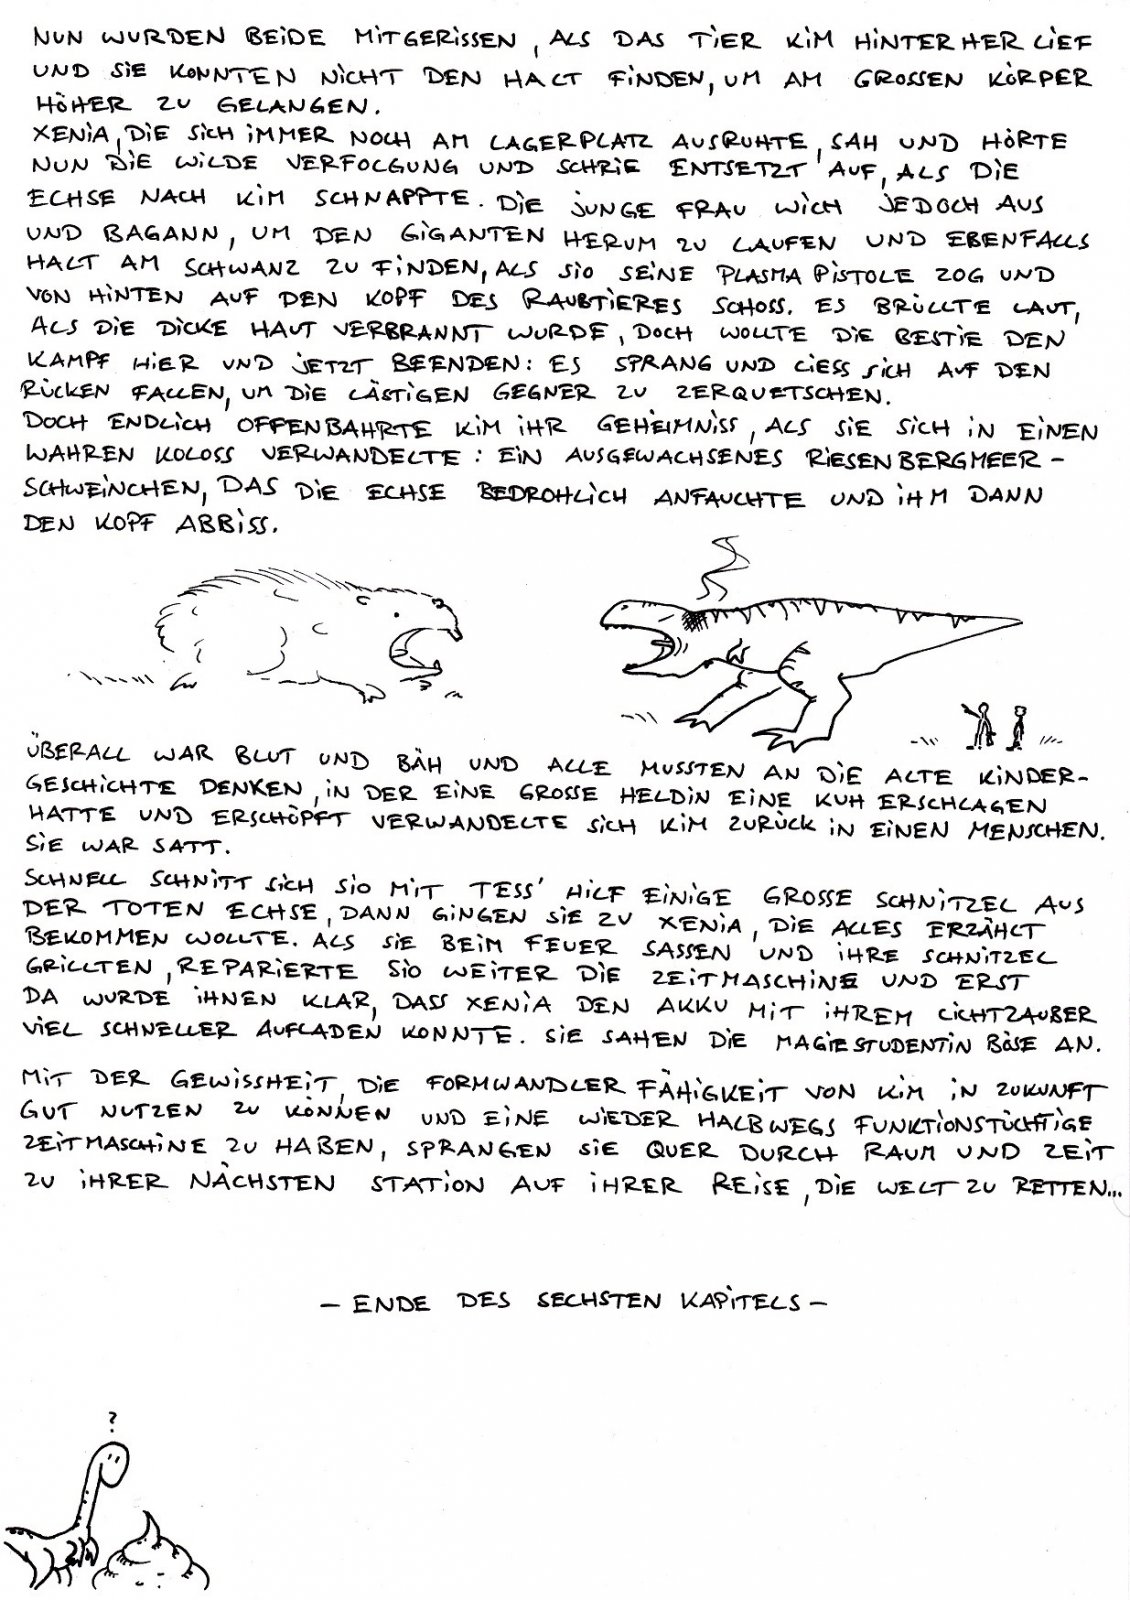 NUN WURDEN BEIDE MITGERISSEN, ALS DAS TIER KIM HINTERHER LIEF
UND SIE KONNTEN NICHT DEN HALT FINDEN, UM AM GROSSEN KÖRPER
HÖHER ZU GELANGEN.
XENIA, DIE SICH IMMER NOCH AM LAGERPLATZ AUSRUHTE, SAH UND HÖRTE
NUN DIE WILDE VERFOLGUNG UND SCHRIE ENTSETZT AUF, ALS DIE
ECHSE NACH KIM SCHNAPPTE. DIE JUNGE FRAU WICH JEDOCH AUS
UND BAGANN, UM DEN GIGANTEN HERUM ZU LAUFEN UND EBENFALLS
HALT AM SCHWANZ ZU FINDEN, ALS SIO SEINE PLASMAPISTOLE ZOG UND
VON HINTEN AUF DEN KOPF DES RAUBTIERES SCHOSS. ES BRÜLLTE LAUT,
ALS DIE DICKE HAUT VERBRANNT WURDE, DOCH WOLLTE DIE BESTIE DEN
KAMPF HIER UND JETZT BEENDEN: ES SPRANG UND LIESS SICH AUF DEN
RÜCKEN FALLEN, UM DIE LÄSTIGEN GEGNER ZU ZERQUETSCHEN.
DOCH ENDLICH OFFENBAHRTE KIM IHR GEHEIMNISS, ALS SIE SICH IN EINEN
WAHREN KOLOSS VERWANDELTE: EIN AUSGEWACHSENES RIESENBERGMEER-
SCHWEINCHEN, DAS DIE ECHSE BEDROHLICH ANFAUCHTE UND IHM DANN
DEN KOPF ABBISS.
ÜBERALL WAR BLUT UND BÄH UND ALLE MUSSTEN AN DIE ALTE KINDER-
GESCHICHTE DENKEN, IN DER EINE GROSSE HELDIN EINE KUH ERSCHLAGEN
HATTE UND ERSCHÖPFT VERWANDELTE SICH KIM ZURÜCK IN EINEN MENSCHEN.
SIE WAR SATT.
SCHNELL SCHNITT SICH SIO MIT TESS' HILF EINIGE GROSSE SCHNITZEL AUS
DER TOTEN ECHSE, DANN GINGEN SIE ZU XENIA, DIE ALLES ERZÄHLT
BEKOMMEN WOLLTE. ALS SIE BEIM FEUER SASSEN UND IHRE SCHNITZEL
GRILLTEN, REPARIERTE SIO WEITER DIE ZEITMASCHINE UND ERST
DA WURDE IHNEN KLAR, DASS XENIA DEN AKKU MIT IHREM LICHTZAUBER
VIEL SCHNELLER AUFLADEN KONNTE. SIE SAHEN DIE MAGIESTUDENTIN BÖSE AN.
MIT DER GEWISSHEIT, DIE FORMWANDLER FÄHIGKEIT VON KIM IN ZUKUNFT
GUT NUTZEN ZU KÖNNEN UND EINE WIEDER HALBWEGS FUNKTIONSTÜCHTIGE
ZEITMASCHINE ZU HABEN, SPRANGEN SIE QUER DURCH RAUM UND ZEIT
ZU IHRER NÄCHSTEN STATION AUF IHRER REISE, DIE WELT ZU RETTEN...
- ENDE DES SECHSTEN KAPITELS -
?